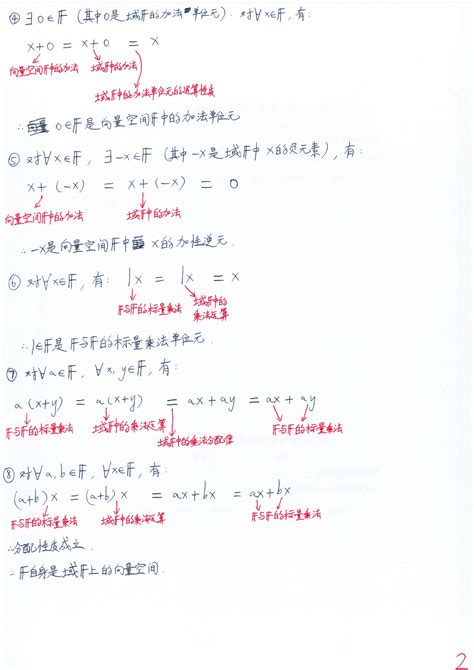 ④ ∃0∈𝔽 (其中0是域𝔽的加法单位元). 对∀x∈𝔽, 有:
x+0 = x+0 = x
向量空间𝔽中的加法 域𝔽中的加法
域𝔽中的加法单位元的运算性质
∴ 0∈𝔽是向量空间𝔽中的加法单位元
⑤ 对∀x∈𝔽, ∃-x∈𝔽 (其中-x是域𝔽中x的负元素), 有:
x+(-x) = x+(-x) = 0
向量空间𝔽中的加法 域𝔽中的加法
∴ -x是向量空间𝔽中 x的加性逆元.
⑥ 对∀x∈𝔽, 有: 1x = 1x = x
𝔽与𝔽的标量乘法 域𝔽中的乘法运算
∴ 1∈𝔽是𝔽与𝔽的标量乘法单位元.
⑦ 对∀a∈𝔽, ∀x,y∈𝔽, 有:
a(x+y) = a(x+y) = ax+ay = ax+ay
𝔽与𝔽的标量乘法 域𝔽中的乘法运算 域𝔽中的乘法分配律 𝔽与𝔽的标量乘法
⑧ 对∀a,b∈𝔽, ∀x∈𝔽, 有:
(a+b)x = (a+b)x = ax+bx = ax+bx
𝔽与𝔽的标量乘法 域𝔽中的乘法运算 𝔽与𝔽的标量乘法
∴分配性质成立.
∴𝔽自身是域𝔽上的向量空间.
2